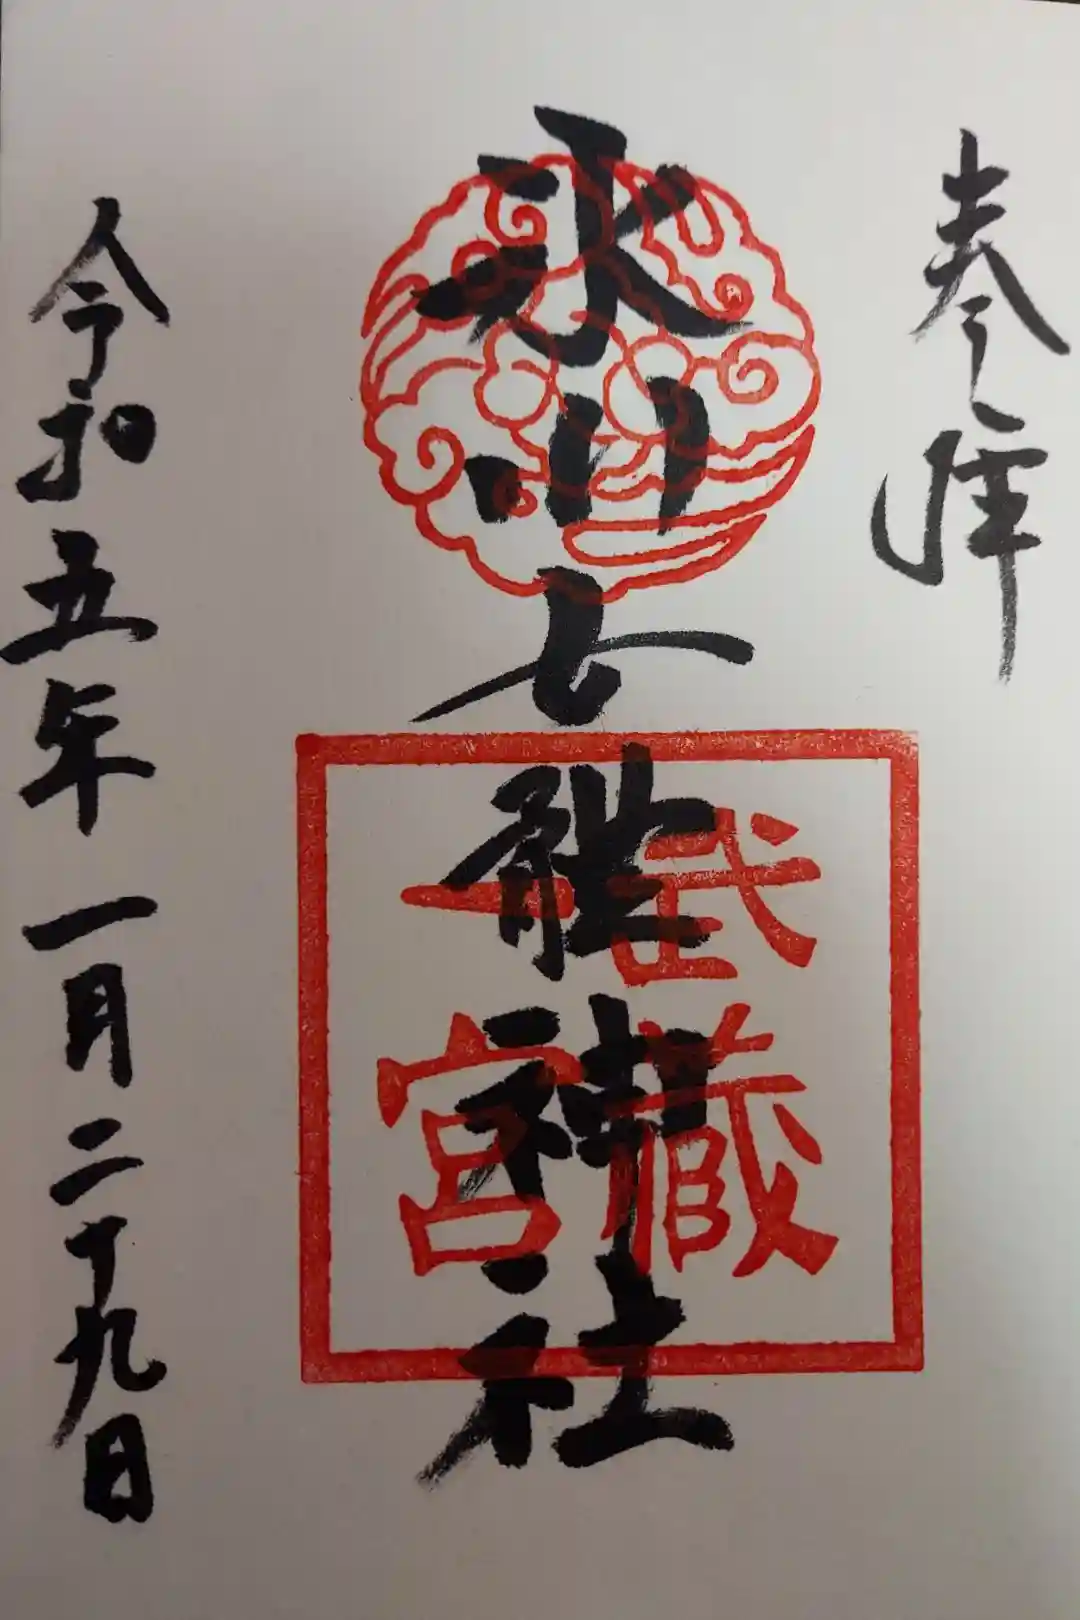 奉拝
氷川女體神社
武蔵
一宮
令和五年一月二十九日